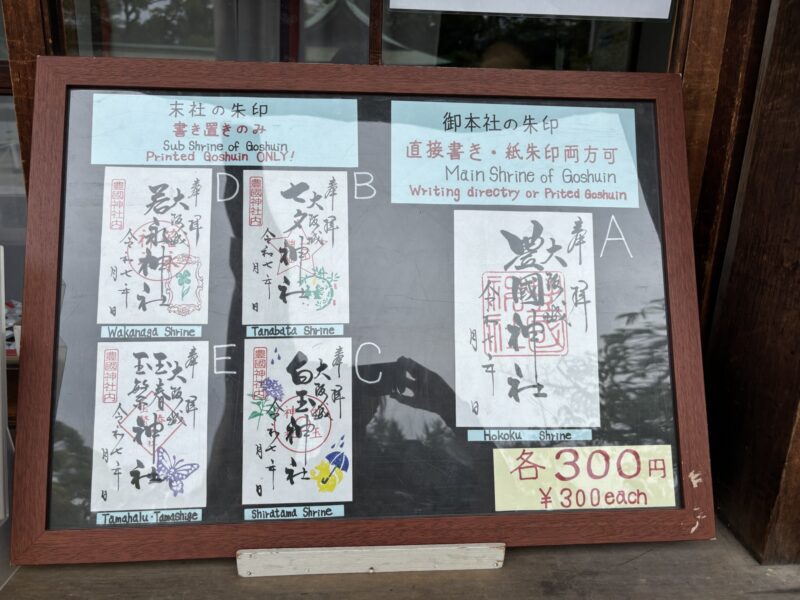 末社の朱印
書き置きのみ
Sub Shrine of Goshuin
Printed Goshuin ONLY!
D
奉拝
大阪城
若永神社
豊國神社内
令和七年
月
日
Wakanaga Shrine
B
奉拝
大阪城
七夕神社
豊國神社内
令和七年
月
日
Tanabata Shrine
E
奉拝
大阪城
玉春
玉繁神社
豊國神社内
令和七年
月
日
Tamahalu・Tamashige
C
奉拝
大阪城
白玉神社
豊國神社内
令和七年
月
日
Shiratama Shrine
御本社の朱印
直接書き・紙朱印両方可
Main Shrine of Goshuin
Writing directry or Prited Goshuin
A
奉拝
大阪城
豊國神社
令和七年
月
日
Hokoku Shrine
各300円
¥300each